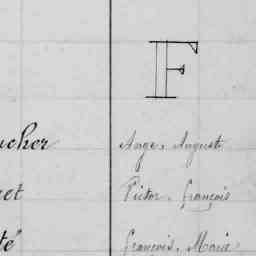 F
ucher Ange, Auguste
Victor, François
té François, Marie